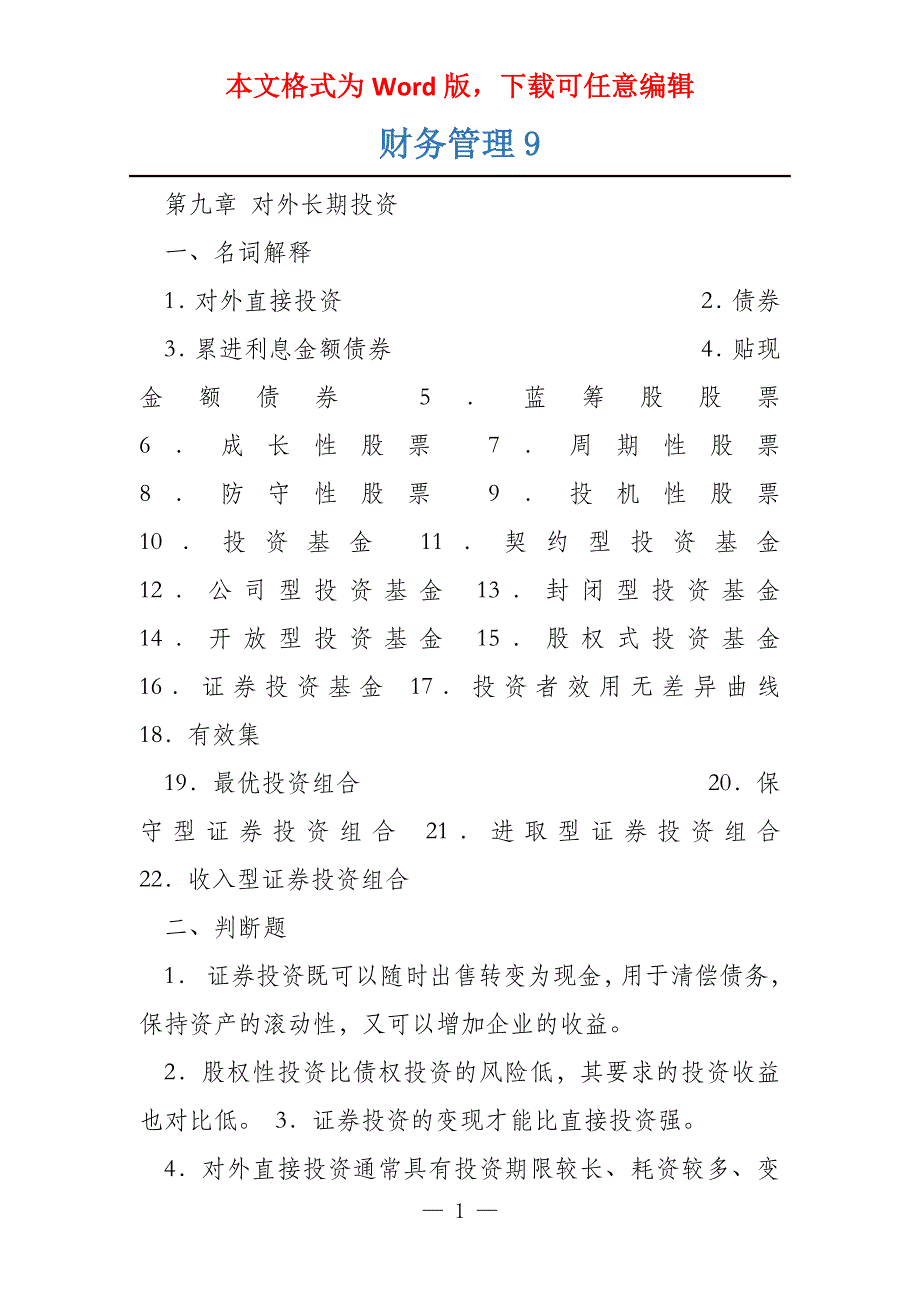 本文格式为 Word 版，下载可任意编辑
财务管理 9
第九章 对外长期投资
一、名词解释
1．对外直接投资 2．债券
3．累进利息金额债券 4．贴现
金额债券 5．蓝筹股股票
6．成长性股票 7．周期性股票
8．防守性股票 9．投机性股票
10．投资基金 11．契约型投资基金
12．公司型投资基金 13．封闭型投资基金
14．开放型投资基金 15．股权式投资基金
16．证券投资基金 17．投资者效用无差异曲线
18．有效集
19．最优投资组合 20．保
守型证券投资组合 21．进取型证券投资组合
22．收入型证券投资组合
二、判断题
1． 证券投资既可以随时出售转变为现金，用于清偿债务，
保持资产的滚动性，又可以增加企业的收益。
2．股权性投资比债权投资的风险低，其要求的投资收益
也对比低。 3．证券投资的变现才能比直接投资强。
4．对外直接投资通常具有投资期限较长、耗资较多、变
— 1 —